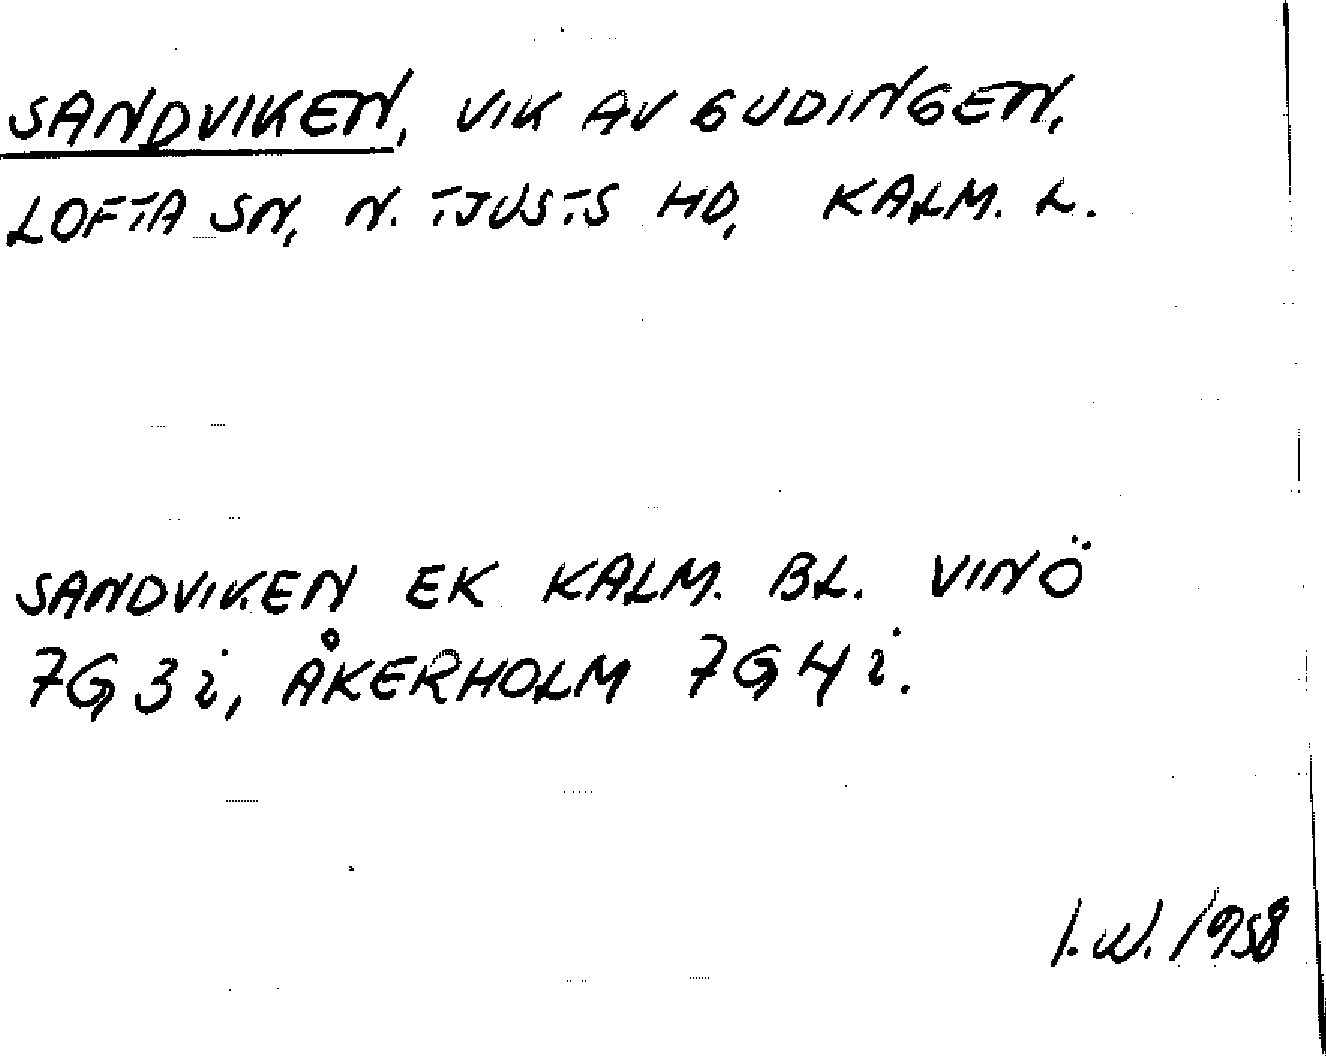 SANDVIKEN, VIK AV GUDINGEN,
LOFTA SN, N. TJUSTS HD, KALM. L.
SANDVIKEN EK KALM. BL. VINÖ
7G3i, ÅKERHOLM 7G4i.
I.W. 1958